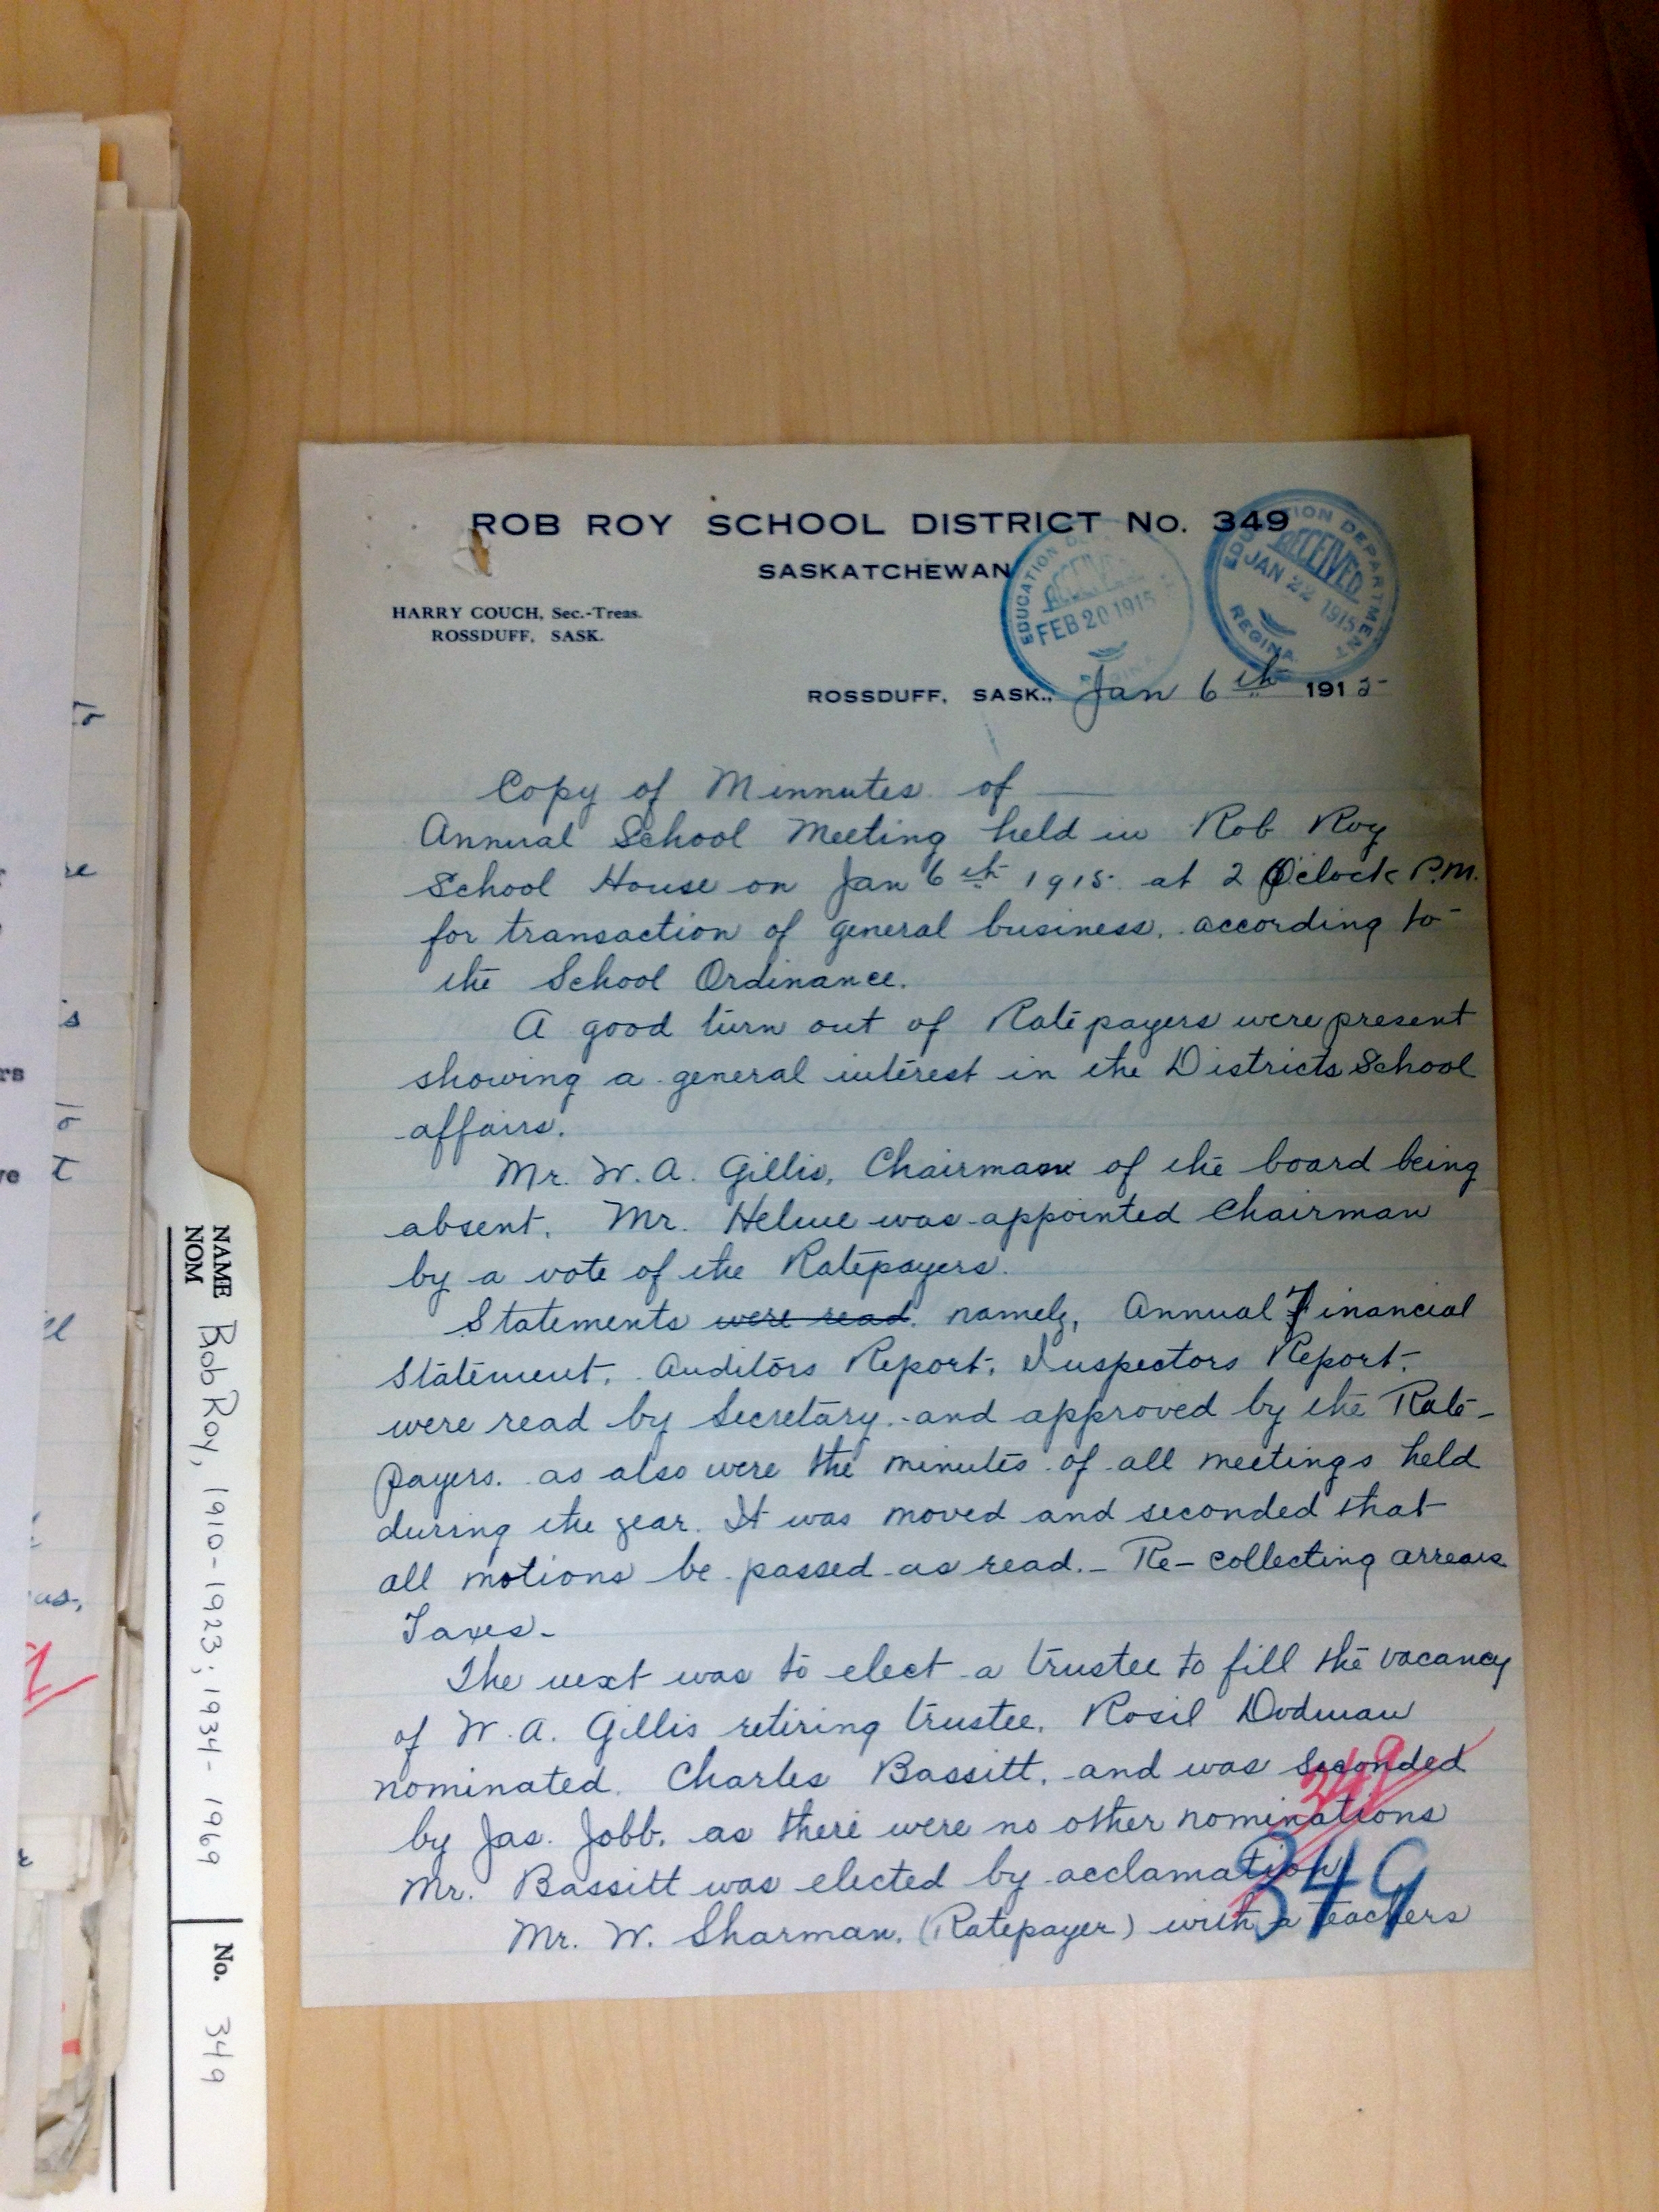 ROB ROY SCHOOL DISTRICT No. 349
SASKATCHEWAN
HARRY COUCH, Sec.-Treas.
ROSSDUFF, SASK.
EDUCATION
RECEIVED
FEB 20 1915
REGINA
EDUCATION DEPARTMENT
RECEIVED
JAN 22 1915
REGINA
ROSSDUFF, SASK., Jan 6th 1915
Copy of Minnutes of
Annual School Meeting held in Rob Roy
School House on Jan 6th 1915 at 2 O'clock P.M.
for transaction of general business, according to
the School Ordinance.
A good turn out of Ratepayers were present
showing a general interest in the Districts School
affairs.
Mr. W. A. Gillis, Chairman of the board being
absent, Mr. Helme was appointed Chairman
by a vote of the Ratepayers.
Statements were read, namely, Annual Financial
Statement, Auditors Report, Inspectors Report,
were read by Secretary and approved by the Rate-
payers. as also were the minutes of all meetings held
during the year. It was moved and seconded that
all motions be passed as read. - Re-collecting arrears
Taxes-
The next was to elect a trustee to fill the vacancy
of W. A. Gillis retiring trustee, Rosil Dodman
nominated Charles Bassitt, and was seconded
by Jas. Jobb, as there were no other nominations
Mr. Bassitt was elected by acclamation
Mr. W. Sharman, (Ratepayer) with a teachers
349
349
NAME
NOM
Rob Roy, 1910-1923; 1934-1969
No. 349